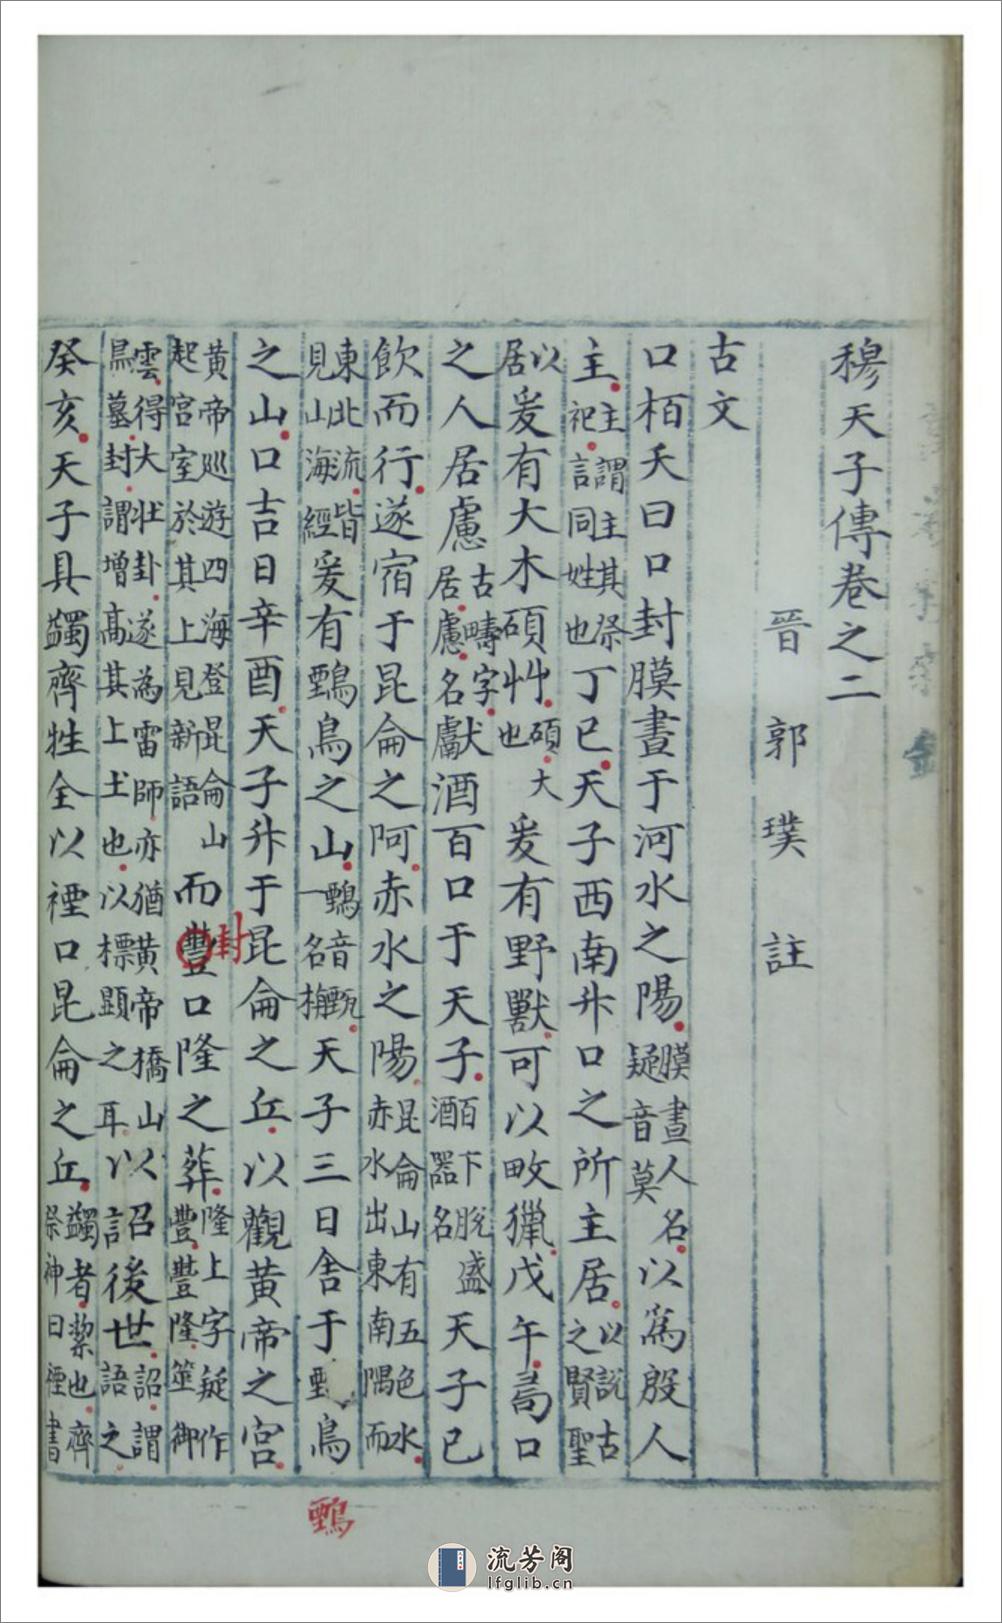 穆天子傳卷之二
晉郭璞註
古文
口栢夭曰口封膜晝于河水之陽膜晝人名疑音莫以爲殷人
主主謂主其祭祀言同姓也丁巳天子西南升口之所主居以說古之賢聖
以居爰有大木碩艸碩大也爰有野獸可以畋獵戊午口
之人居慮古疇字居慮名獻酒百口于天子百下脫盛酒器名天子已
飲而行遂宿于昆侖之阿赤水之陽昆侖山有五色水赤水出東南隅而
東北流皆見山海經爰有𪃋鳥之山𪃋音甄一名天子三日舍于𪃋鳥
之山口吉日辛酉天子升于昆侖之丘以觀黃帝之宮
黃帝巡遊四海登昆侖山起宮室於其上見新語而豐口隆之葬隆上字疑作豐豐隆筮御
封
雲得大壯卦遂為雷師亦猶黃帝橋山墓封謂增高其上土也以標顯之耳以詔後世詔謂語之
癸亥天子具蠲齊牲全以禋口昆侖之丘蠲者絜也齊祭神曰禋書
𪃋
流芳阁
lfglib.cn